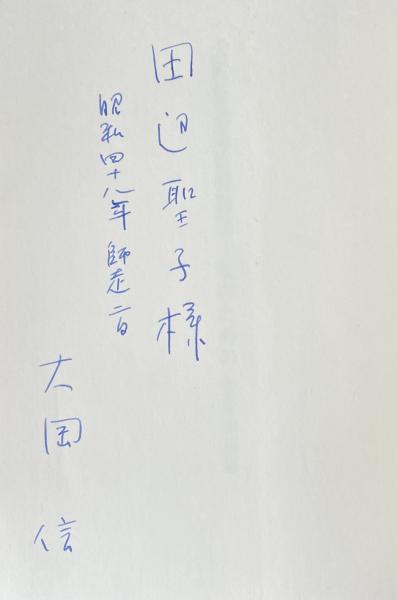 田辺聖子様
昭和四十八年 師走二日
大岡 信